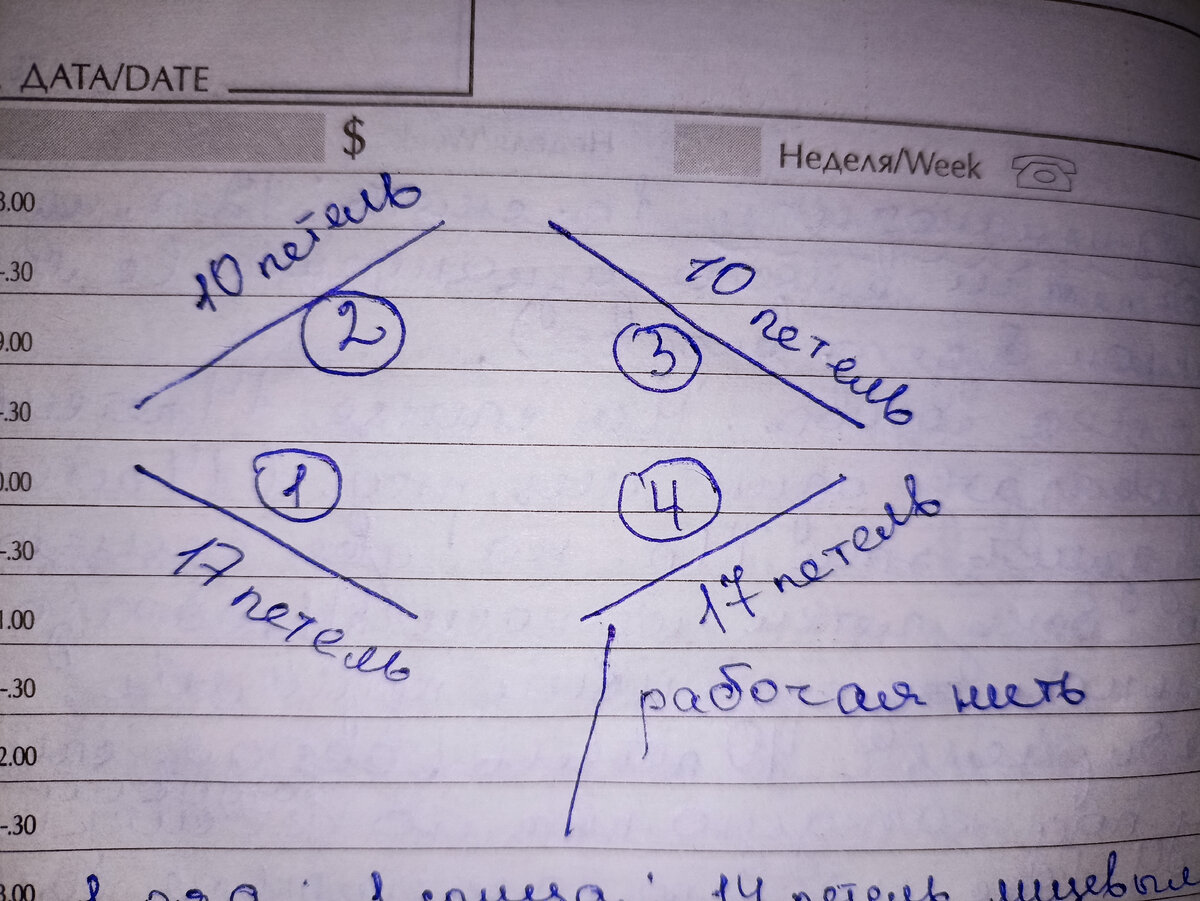 ДАТА/DATE
$
Неделя/Week
8.00
-.30
9.00
-.30
0.00
-.30
1.00
-.30
2.00
-.30
3.00
10 петель
2
10 петель
3
1
17 петель
4
17 петель
рабочая нить
1 ряд : 1 спица : 14 петель лицевым